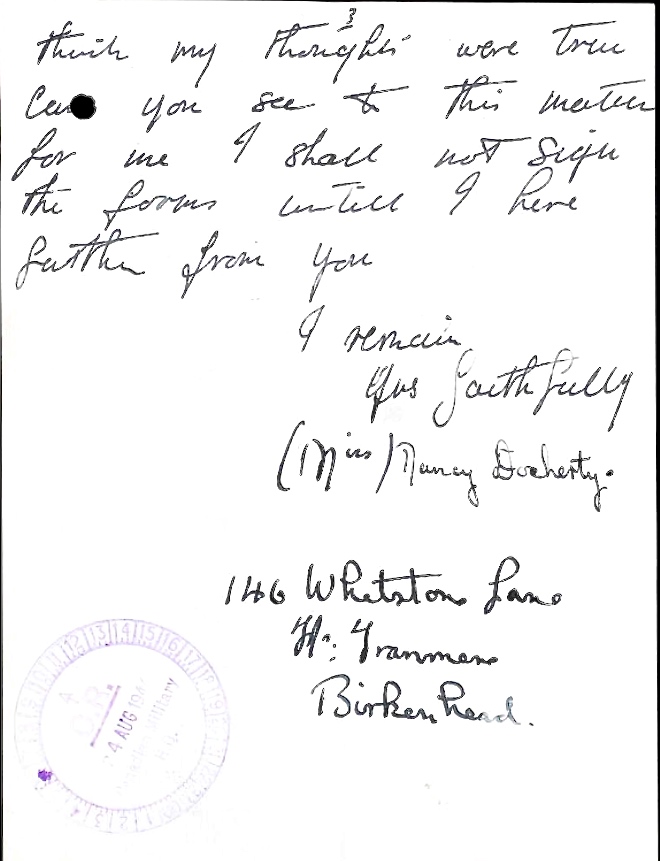 3
think my thoughts were true
Can you see to this matter
for me I shall not sign
the forms untill I here
futther from you
I remain
Yrs faithfully
(Miss) Nancy Docherty.
146 Whetstone Lane
Hr: Tranmere
Birkenhead.
12 13 14 15 16 17 18 19
O.R.
4 AUG
Military